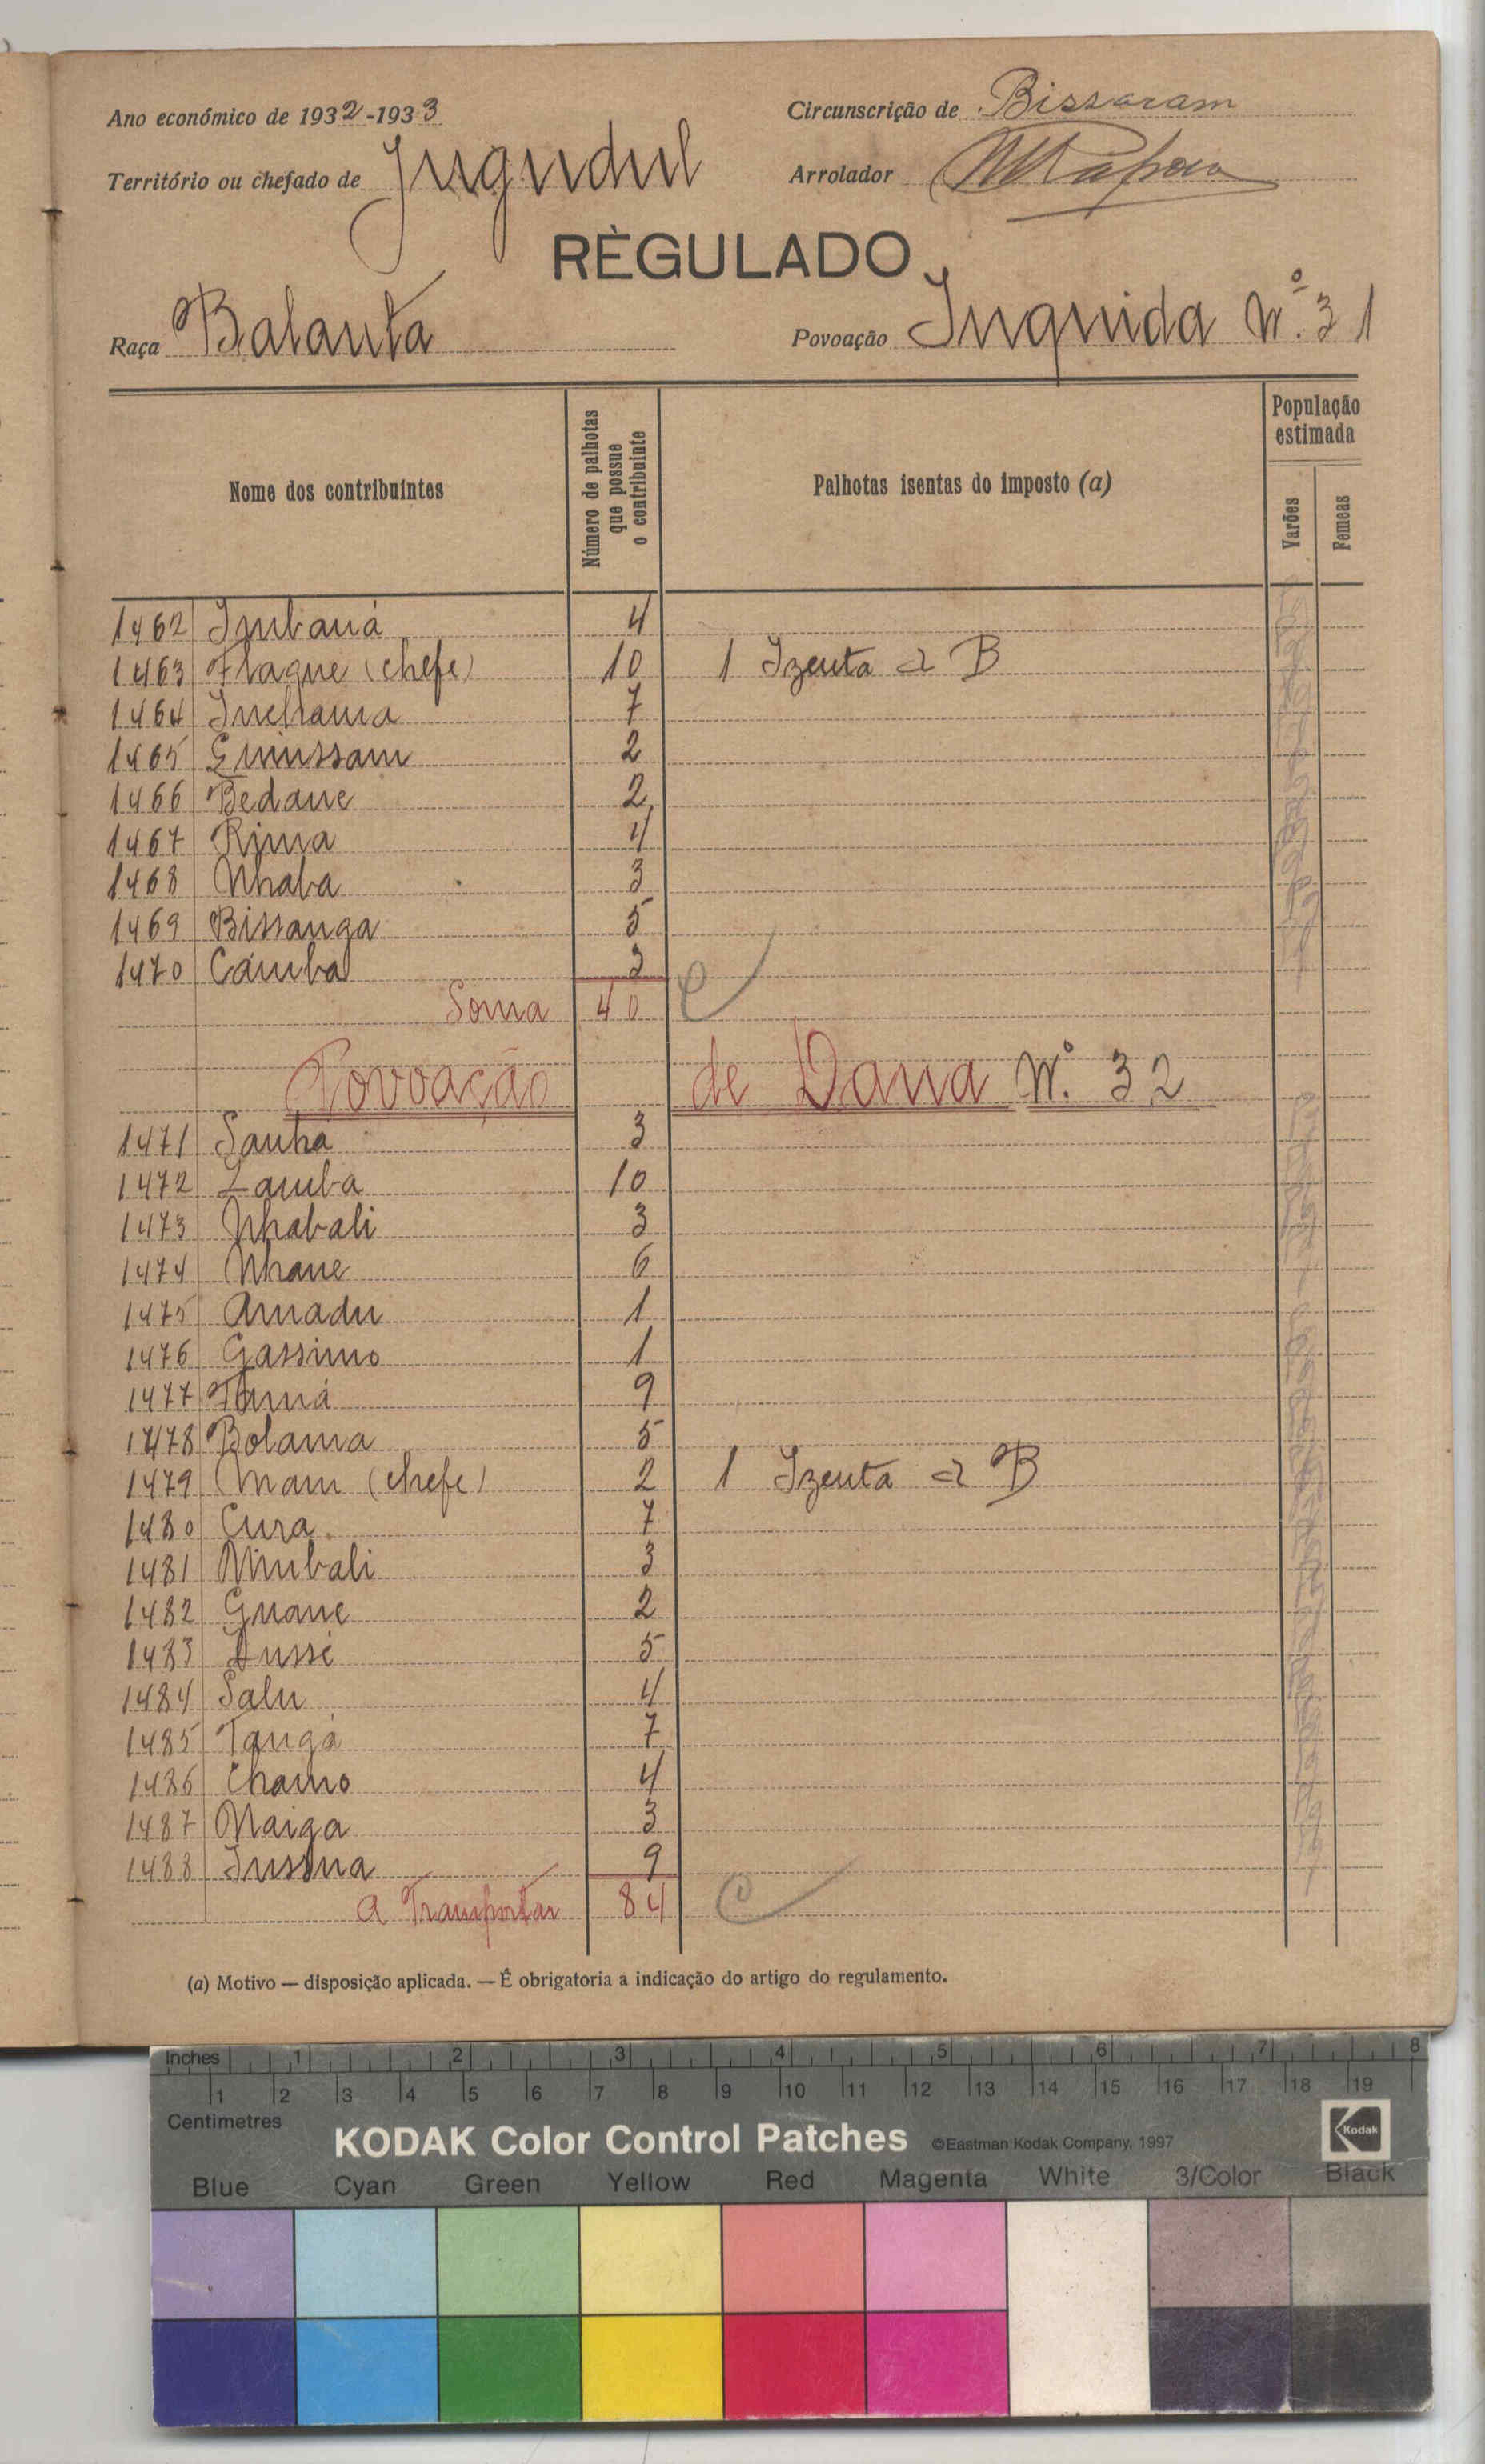 Ano económico de 1932-1933
Circunscrição de Bissoram
Território ou chefado de Jugudul
Arrolador
RÈGULADO
Raça Balanta
Povoação Inquida Nº. 31
Nome dos contribuintes
Número de palhotas que possue o contribuinte
Palhotas isentas do imposto (a)
População estimada
Varões
Femeas
1462 Imbaná 4
1463 Flaque (chefe) 10 1 Izenta a B
1464 Inchama 7
1465 2
1466 Bedane 2
1467 Rima 4
1468 Nhaba 3
1469 Bissanga 5
1470 Cámba 3
Soma 40
Povoação de Dana Nº. 32
1471 Sanhá 3
1472 Lamba 10
1473 Nhabali 3
1474 Nhane 6
1475 Amadu 1
1476 Gassimo 1
1477 9
1478 Bolama 5
1479 (chefe) 2 1 Izenta a B
1480 Cura 7
1481 Nimbali 3
1482 Guane 2
1483 Dussé 5
1484 Salu 4
1485 Tangá 7
1486 Chamo 4
1487 Naiga 3
1488 9
A Transportar 84
(a) Motivo — disposição aplicada. — É obrigatoria a indicação do artigo do regulamento.
Inches 1 2 3 4 5 6 7 8
1 2 3 4 5 6 7 8 9 10 11 12 13 14 15 16 17 18 19
Centimetres
KODAK Color Control Patches ©Eastman Kodak Company, 1997 Kodak
Blue Cyan Green Yellow Red Magenta White 3/Color Black